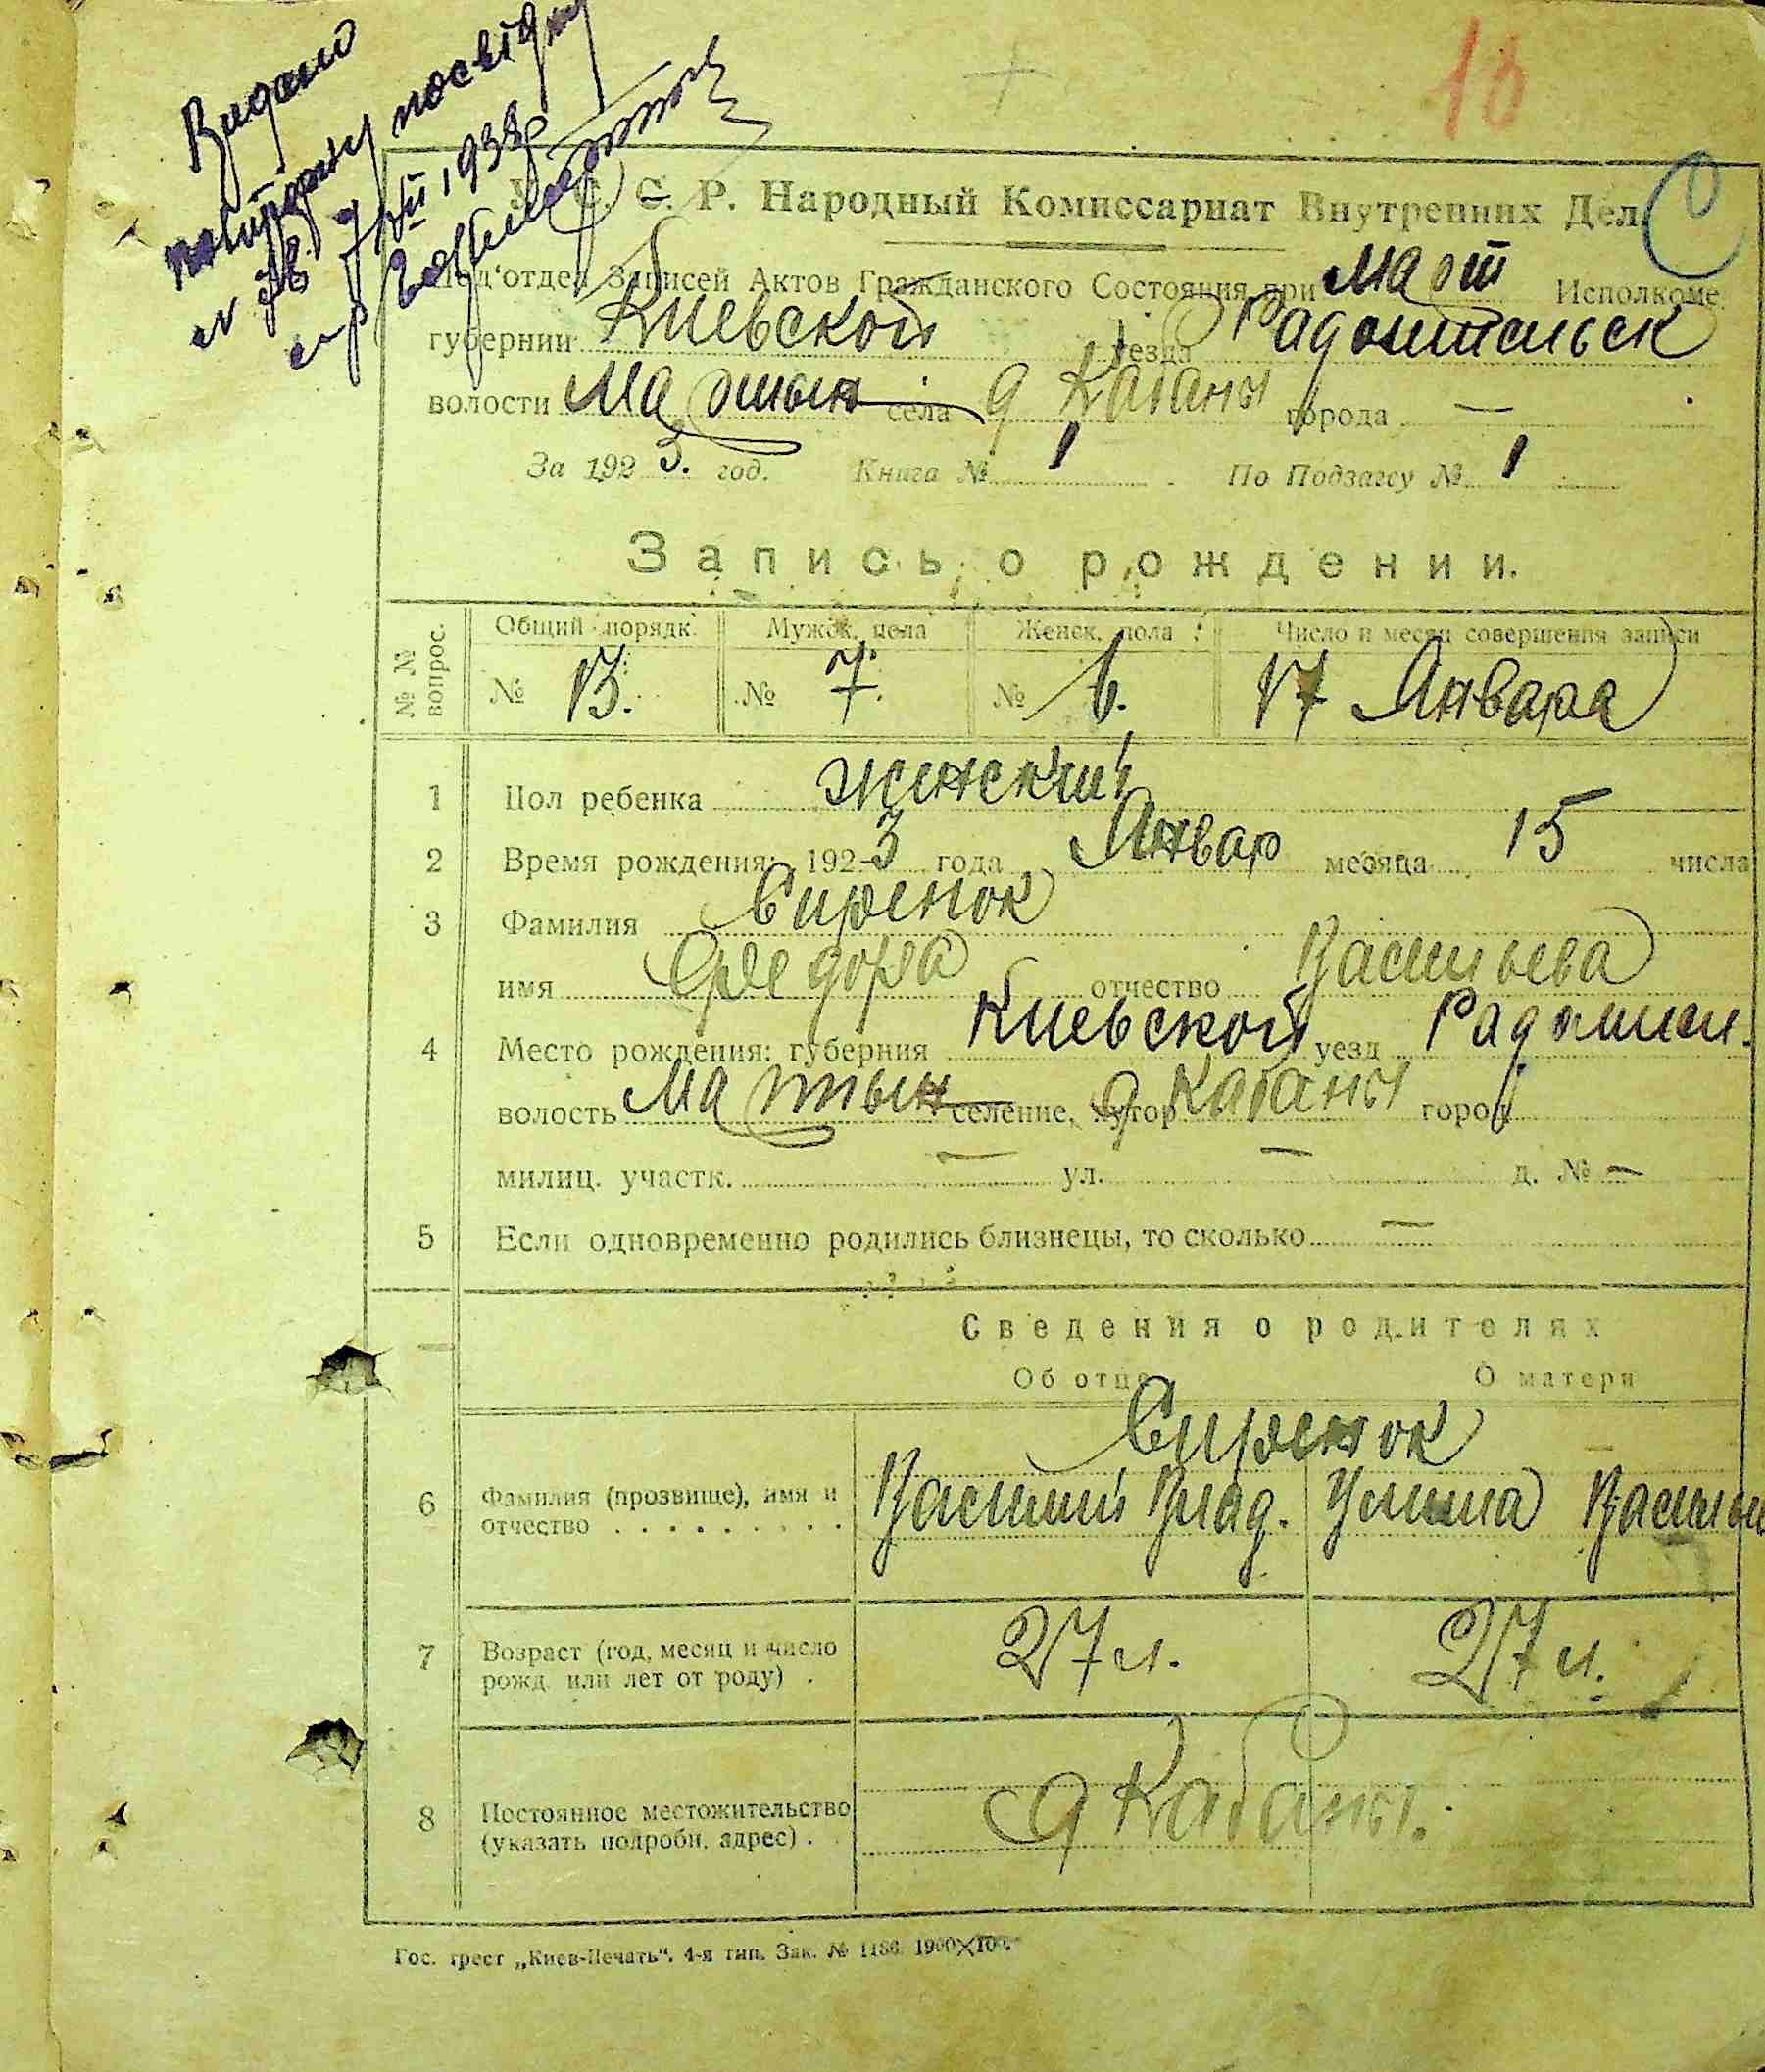 Видано
повторну посвідку
7/VII 1938 р
13
У. С. С. Р. Народный Комиссариат Внутренних Дел.
Под'отдел Записей Актов Гражданского Состояния при Март Исполкоме
губернии Киевской уезда Радомысльск
волости Мартын села д Кабаны города —
За 1923. год. Книга № 1 По Подзагсу № 1
Запись о рождении.
№ № вопрос. Общий порядк. Мужск. пола Женск. пола Число и месяц совершения записи
№ 13. № 7. № 6. 17 Января
1 Пол ребенка женский
2 Время рождения: 1923 года Январ месяца 15 числа
3 Фамилия Сиренок
имя Федора отчество Васильева
4 Место рождения: губерния Киевской уезд Радомысл.
волость Мартын селение, хутор д Кабаны город
милиц. участк. — ул. — д. № —
5 Если одновременно родились близнецы, то сколько —
Сведения о родителях
Об отце О матери
Сиренок
6 Фамилия (прозвище), имя и
отчество . . . . . . . . . Василий Влад. Улита Васильев
7 Возраст (год, месяц и число
рожд или лет от роду) . 27 л. 27 л.
8 Постоянное местожительство
(указать подробн. адрес) . д Кабаны.
Гос. трест „Киев-Печать“. 4-я тип. Зак. № 1186. 1900×100.